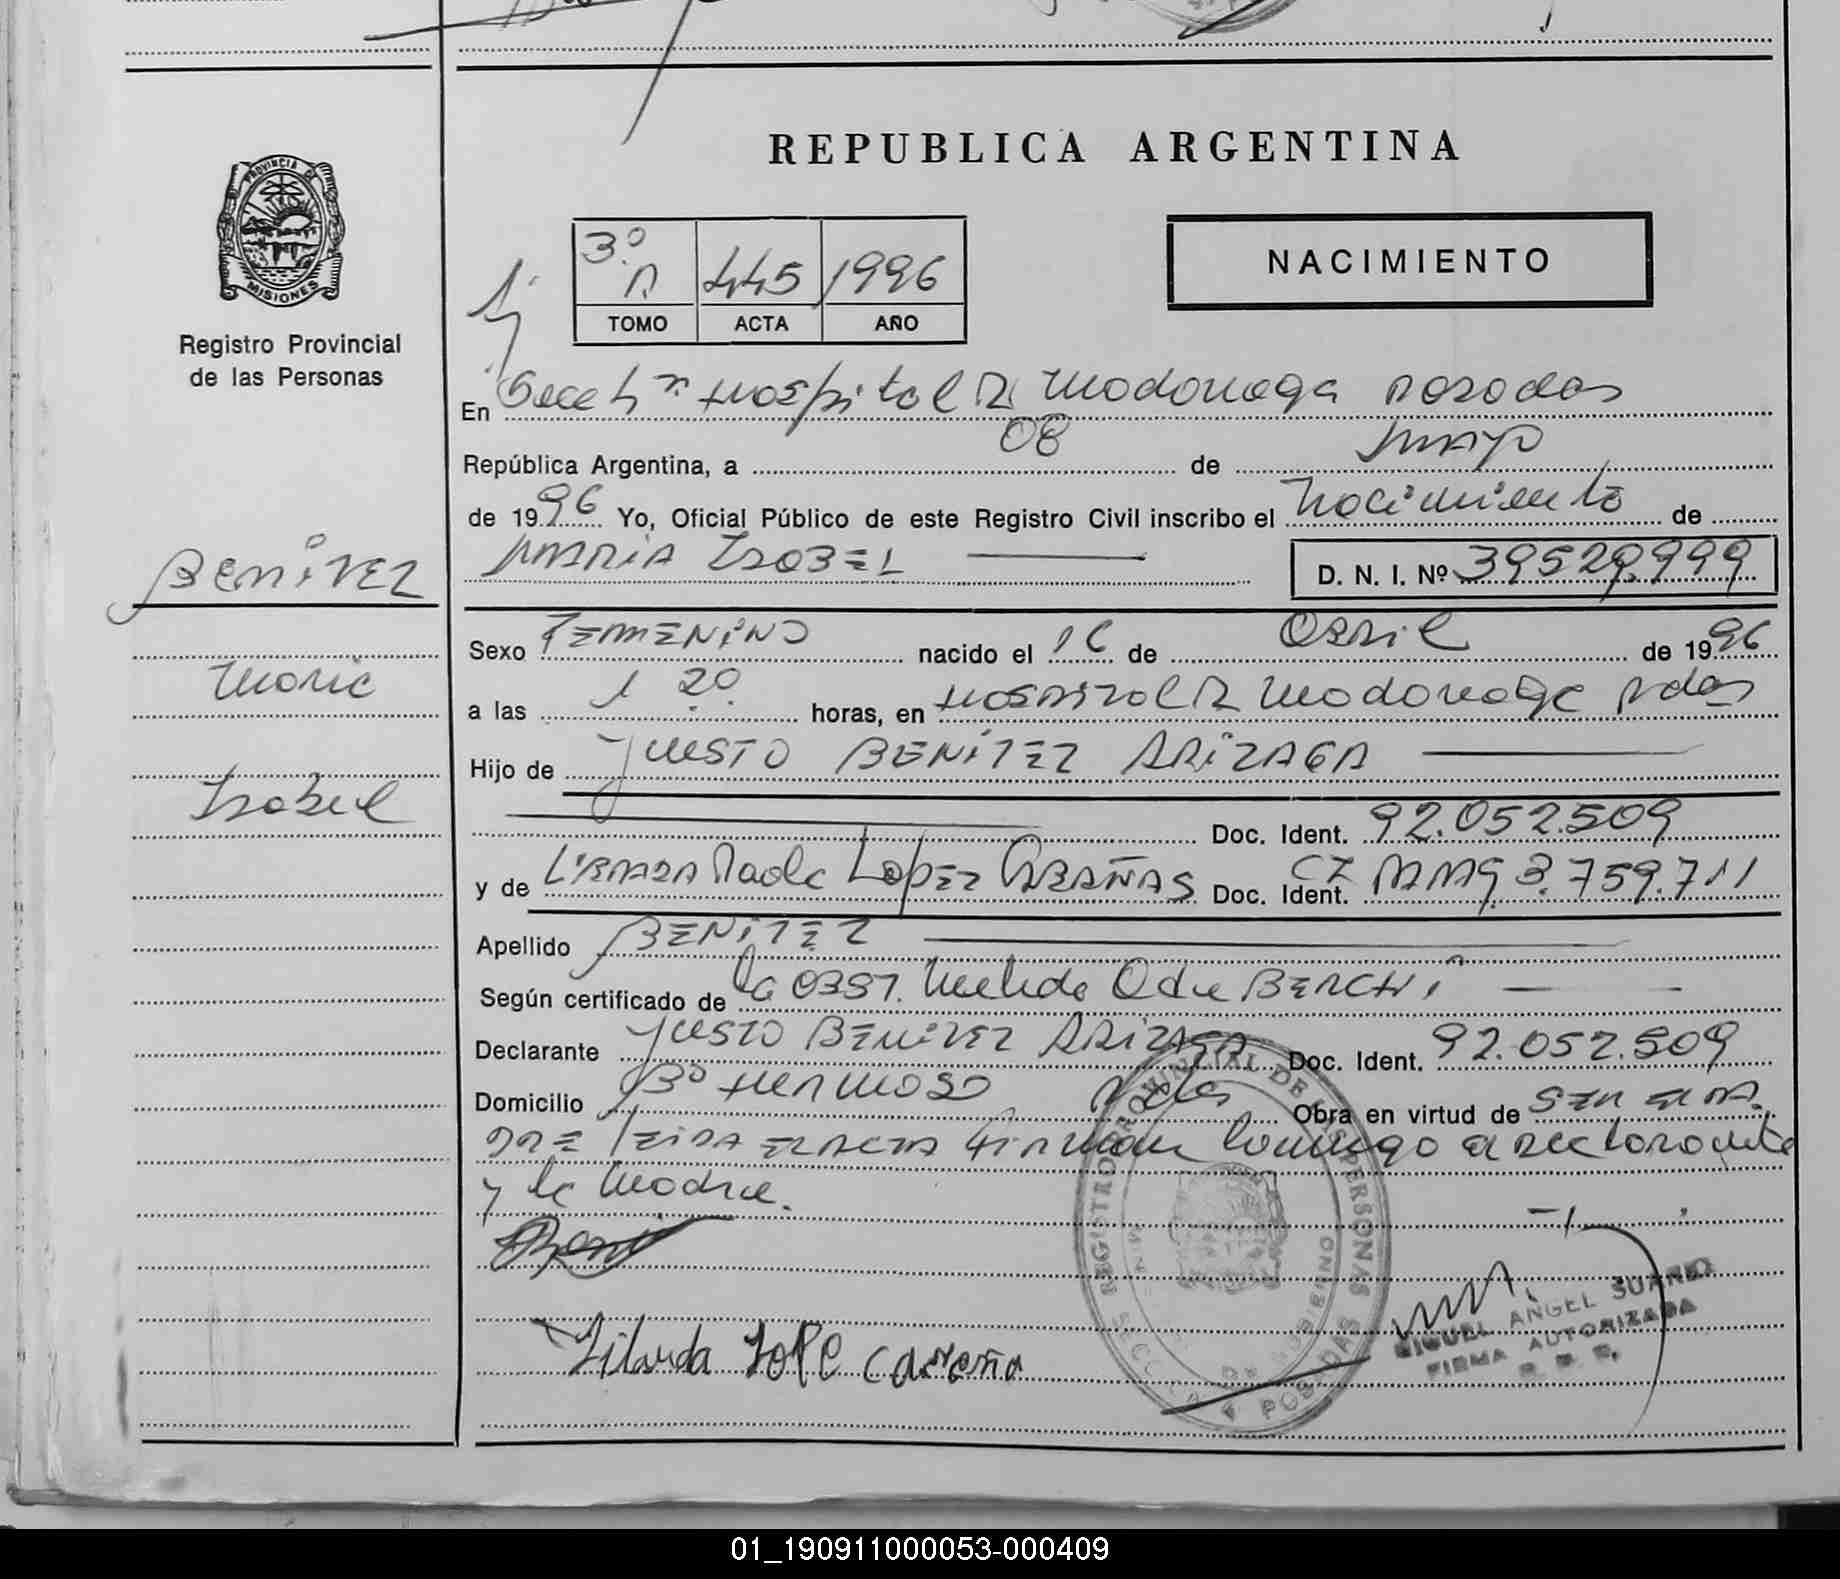 REPUBLICA ARGENTINA
PROVINCIA DE MISIONES
Registro Provincial
de las Personas
3º A 445 1996
TOMO ACTA AÑO
NACIMIENTO
En Secc 4ª Hospital R Madariaga Posadas
República Argentina, a 08 de Mayo
de 1996 Yo, Oficial Público de este Registro Civil inscribo el Nacimiento de
MARIA ISABEL D. N. I. Nº 39529.999
BENITEZ
Maria
Isabel
Sexo FEMENINO nacido el 16 de Abril de 1996
a las 1 20 horas, en HOSPITAL R Madariaga Pdas
Hijo de JUSTO BENITEZ ARIZAGA
Doc. Ident. 92.052.509
y de LOPEZ CABAÑAS Doc. Ident. 3.759.711
Apellido BENITEZ
Según certificado de la OBST.
Declarante JUSTO BENITEZ ARIZAGA Doc. Ident. 92.052.509
Domicilio Bº HERMOSO Pdas Obra en virtud de SER EL PA
DRE LEIDA EL ACTA FIRMAN Conmigo el declarante
y la Madre.
REGISTRO PROVINCIAL DE LAS PERSONAS
POSADAS
MIGUEL ANGEL SUAREZ
FIRMA AUTORIZADA
01_190911000053-000409